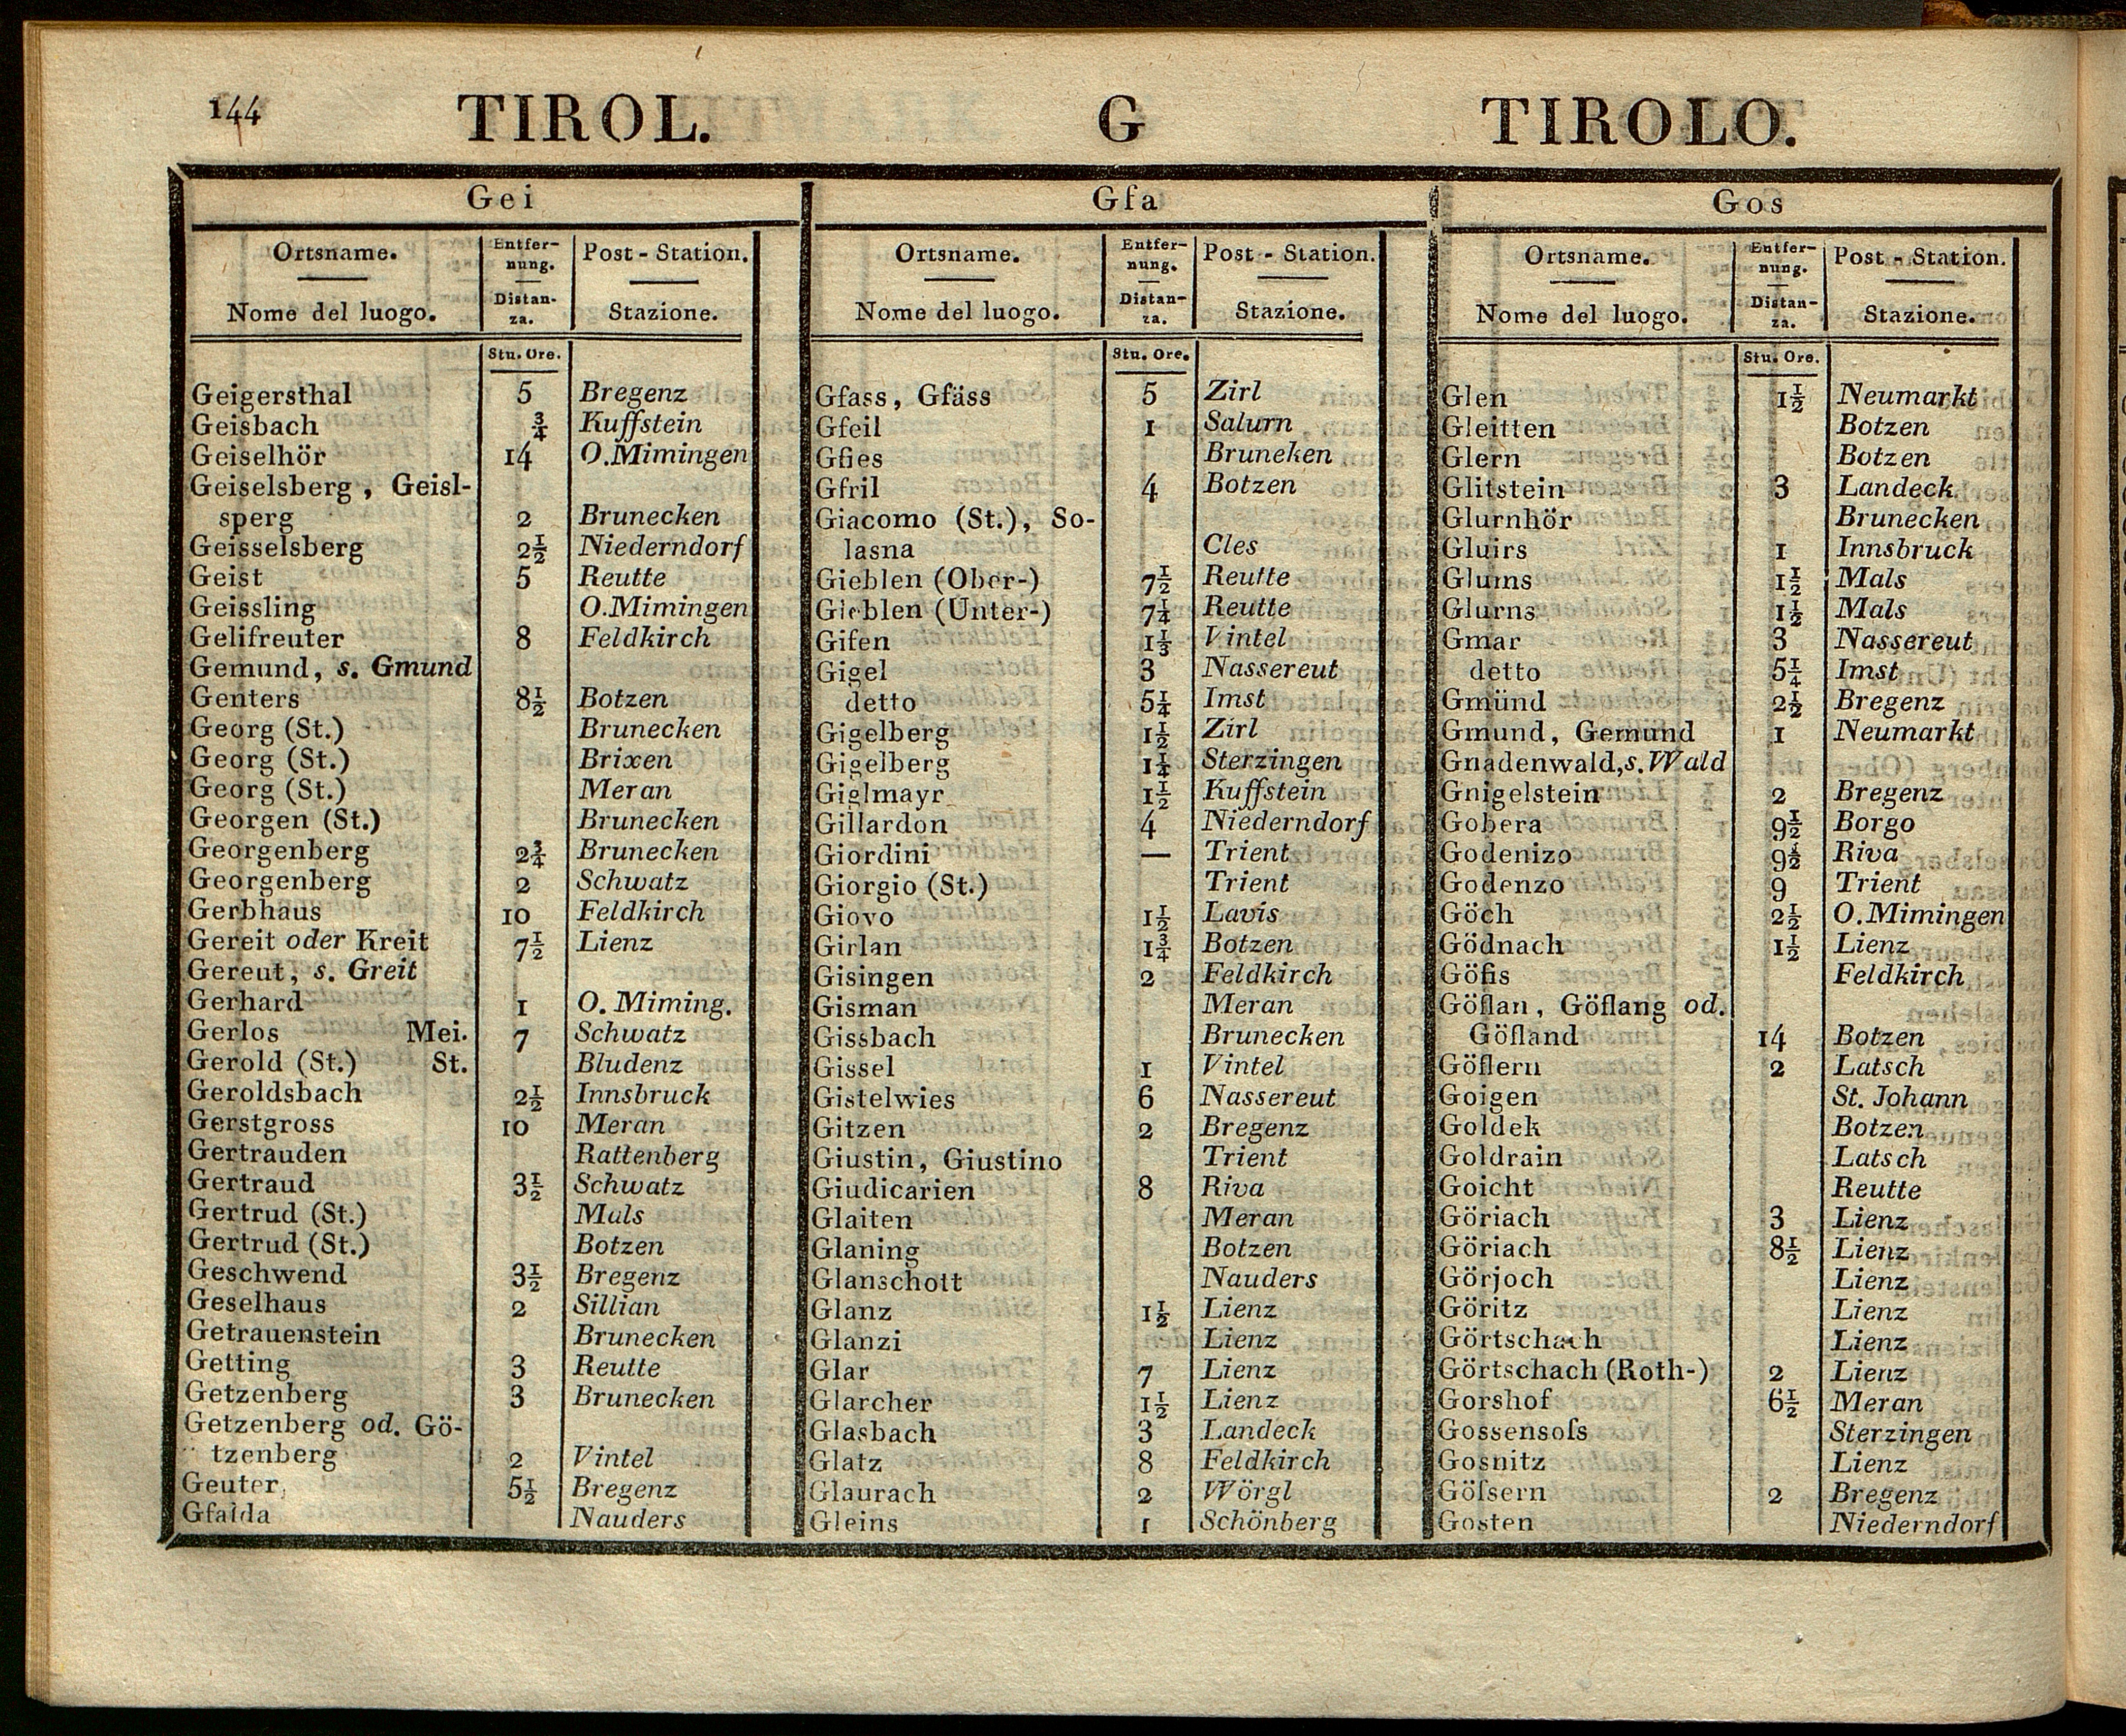 144 TIROL. G TIROLO.
Gei
Ortsname. Entfer-nung. Post - Station.
Nome del luogo. Distan-za. Stazione.
Stu. Ore.
Geigersthal 5 Bregenz
Geisbach ¾ Kuffstein
Geiselhör 14 O.Mimingen
Geiselsberg, Geisl-
sperg 2 Brunecken
Geisselsberg 2½ Niederndorf
Geist 5 Reutte
Geissling O.Mimingen
Gelifreuter 8 Feldkirch
Gemund, s. Gmund
Genters 8½ Botzen
Georg (St.) Brunecken
Georg (St.) Brixen
Georg (St.) Meran
Georgen (St.) Brunecken
Georgenberg 2¾ Brunecken
Georgenberg 2 Schwatz
Gerbhaus 10 Feldkirch
Gereit oder Kreit 7½ Lienz
Gereut, s. Greit
Gerhard 1 O. Miming.
Gerlos Mei. 7 Schwatz
Gerold (St.) St. Bludenz
Geroldsbach 2½ Innsbruck
Gerstgross 10 Meran
Gertrauden Rattenberg
Gertraud 3½ Schwatz
Gertrud (St.) Mals
Gertrud (St.) Botzen
Geschwend 3½ Bregenz
Geselhaus 2 Sillian
Getrauenstein Brunecken
Getting 3 Reutte
Getzenberg 3 Brunecken
Getzenberg od. Gö-
tzenberg 2 Vintel
Geuter 5½ Bregenz
Gfalda Nauders
Gfa
Ortsname. Entfer-nung. Post - Station.
Nome del luogo. Distan-za. Stazione.
Stu. Ore.
Gfass, Gfäss 5 Zirl
Gfeil 1 Salurn
Gfies Bruneken
Gfril 4 Botzen
Giacomo (St.), So-
lasna Cles
Gieblen (Ober-) 7½ Reutte
Gieblen (Unter-) 7¼ Reutte
Gifen 1⅓ Vintel
Gigel 3 Nassereut
detto 5¼ Imst
Gigelberg 1½ Zirl
Gigelberg 1¼ Sterzingen
Giglmayr 1½ Kuffstein
Gillardon 4 Niederndorf
Giordini — Trient
Giorgio (St.) Trient
Giovo 1½ Lavis
Girlan 1¾ Botzen
Gisingen 2 Feldkirch
Gisman Meran
Gissbach Brunecken
Gissel 1 Vintel
Gistelwies 6 Nassereut
Gitzen 2 Bregenz
Giustin, Giustino Trient
Giudicarien 8 Riva
Glaiten Meran
Glaning Botzen
Glanschott Nauders
Glanz 1½ Lienz
Glanzi Lienz
Glar 7 Lienz
Glarcher 1½ Lienz
Glasbach 3 Landeck
Glatz 8 Feldkirch
Glaurach 2 Wörgl
Gleins 1 Schönberg
Gos
Ortsname. Entfer-nung. Post - Station.
Nome del luogo. Distan-za. Stazione.
Stu. Ore.
Glen 1½ Neumarkt
Gleitten Botzen
Glern Botzen
Glitstein 3 Landeck
Glurnhör Brunecken
Gluirs 1 Innsbruck
Glums 1½ Mals
Glurns 1½ Mals
Gmar 3 Nassereut
detto 5¼ Imst
Gmünd 2½ Bregenz
Gmund, Gemund 1 Neumarkt
Gnadenwald,s.Wald
Gnigelstein 2 Bregenz
Gobera 9½ Borgo
Godenizo 9½ Riva
Godenzo 9 Trient
Göch 2½ O.Mimingen
Gödnach 1½ Lienz
Göfis Feldkirch
Göflan, Göflang od.
Göfland 14 Botzen
Göflern 2 Latsch
Goigen St. Johann
Goldek Botzen
Goldrain Latsch
Goicht Reutte
Göriach 3 Lienz
Göriach 8½ Lienz
Görjoch Lienz
Göritz Lienz
Görtschach Lienz
Görtschach (Roth-) 2 Lienz
Gorshof 6½ Meran
Gossensoſs Sterzingen
Gosnitz Lienz
Göſsern 2 Bregenz
Gosten Niederndorf